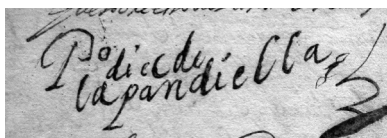 Pº diez de
lapandiella